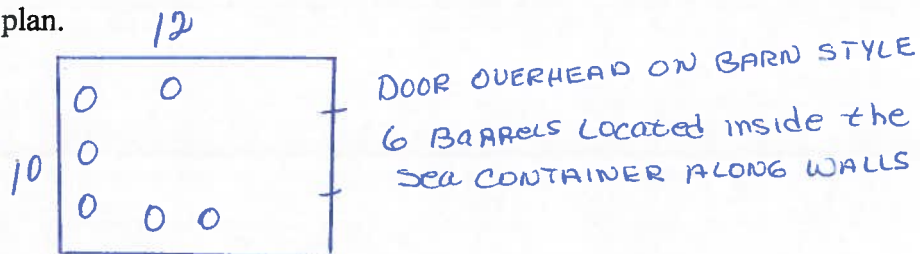 plan.
12
DOOR OVERHEAD ON BARN STYLE
6 BARRELS Located inside the
10
Sea CONTAINER ALONG WALLS